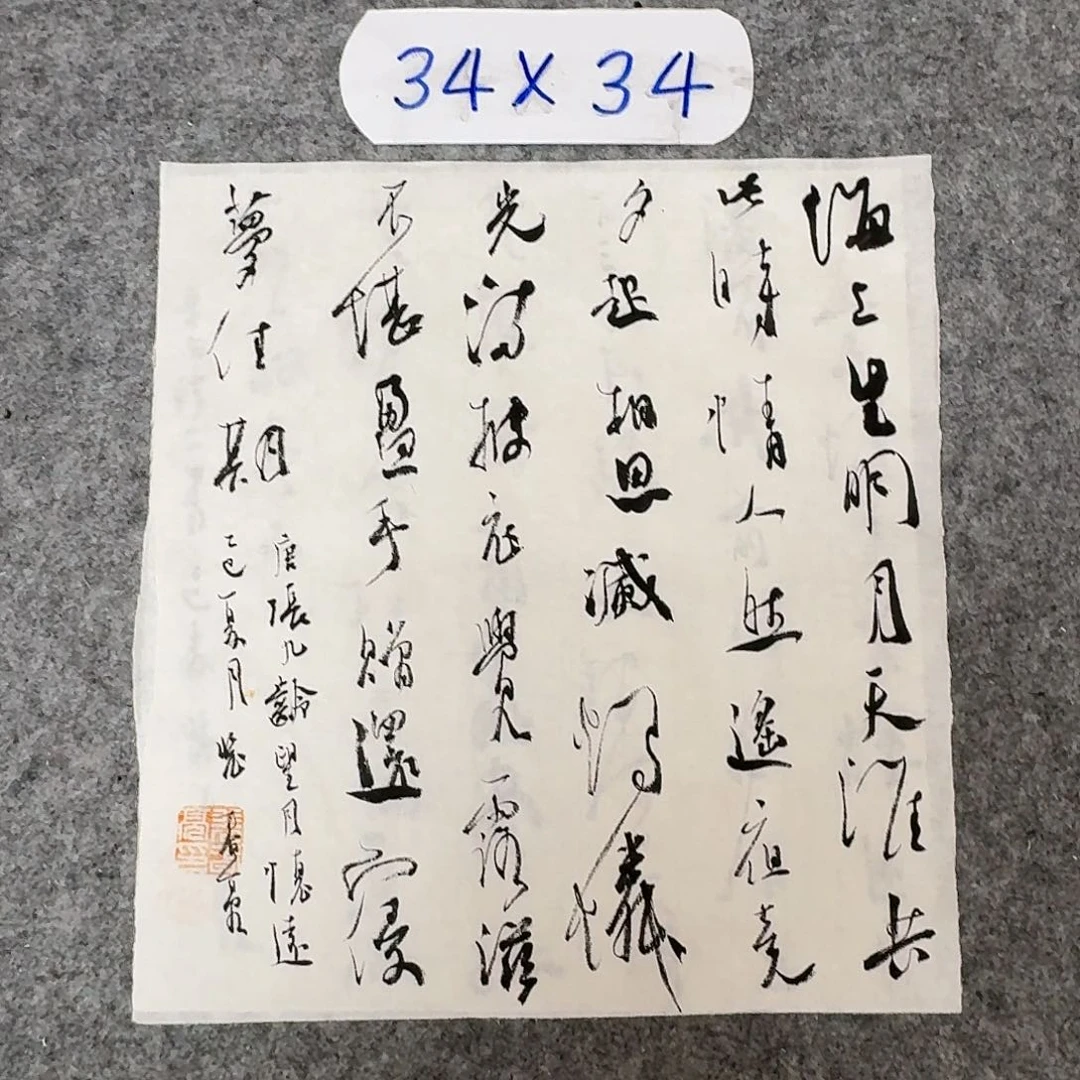 34X34
海上生明月天涯共
此時情人怨遙夜竟
夕起相思滅燭憐
光滿披衣覺露滋
不堪盈手贈還寢
夢佳期
唐張九齡望月懷遠
乙巳夏月